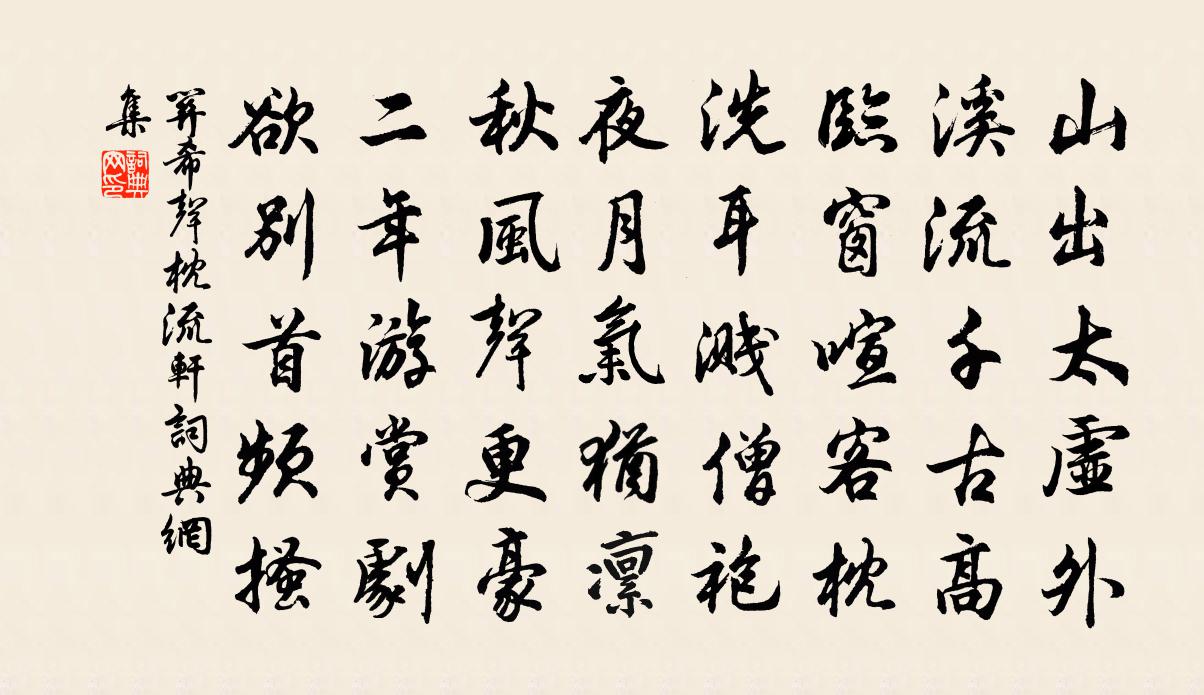 山出太虛外
溪流千古高
臨窗喧客枕
洗耳濺僧袍
夜月氣猶凛
秋風聲更豪
二年游賞劇
欲別首頻搔
羿希聲枕流軒詞典網
集
詞典網印